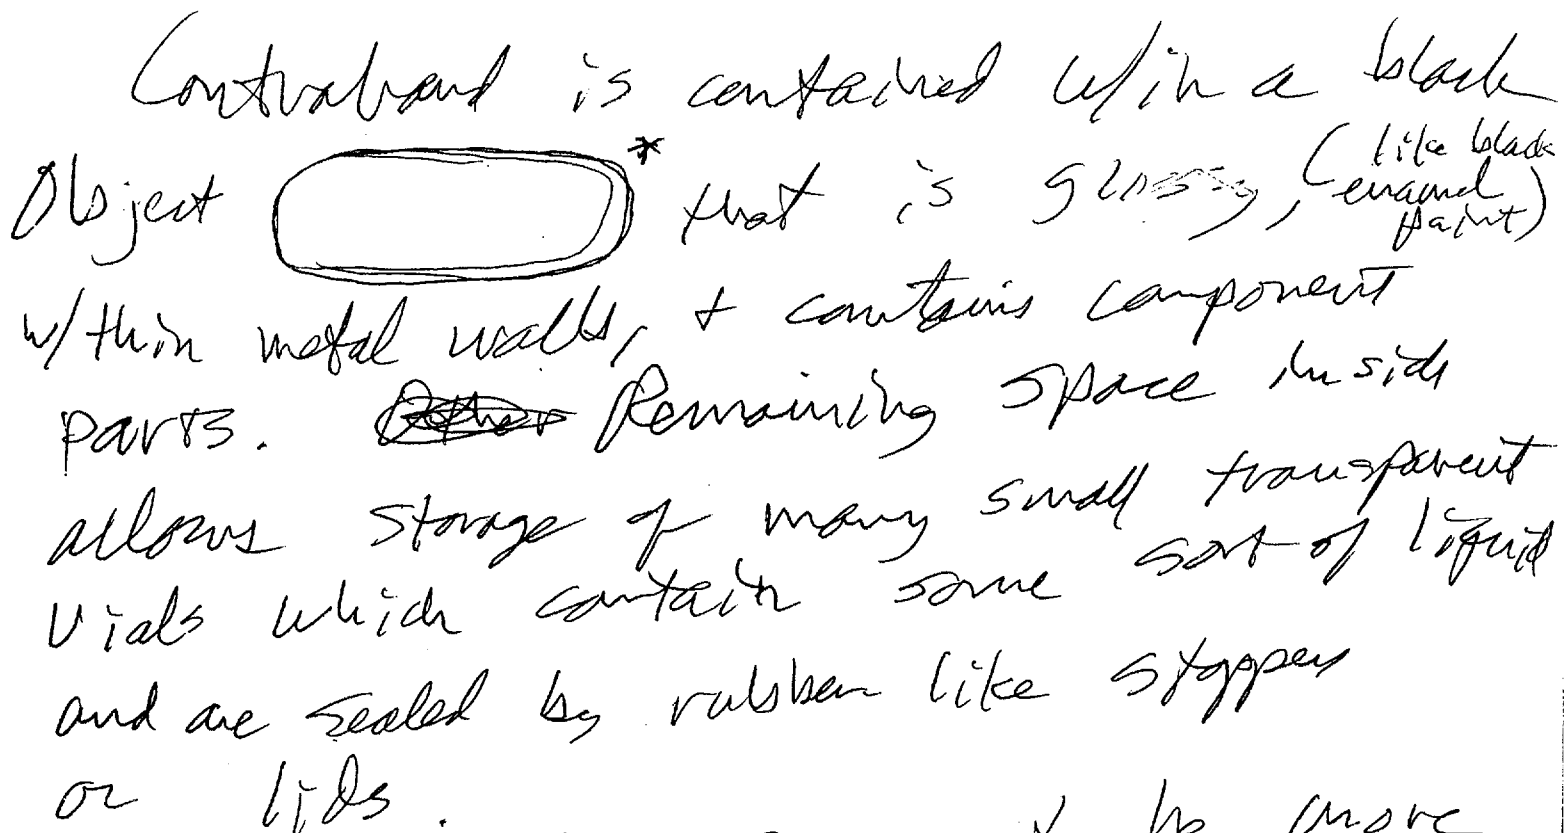 Contraband is contained w/in a black
Object * that is glossy, (like black
enamel
paint)
w/thin metal walls, + contains component
parts. Remaining space inside
allows storage of many small transparent
Vials which contain some sort of liquid
and are sealed by rubber like stoppers
or lids.
more